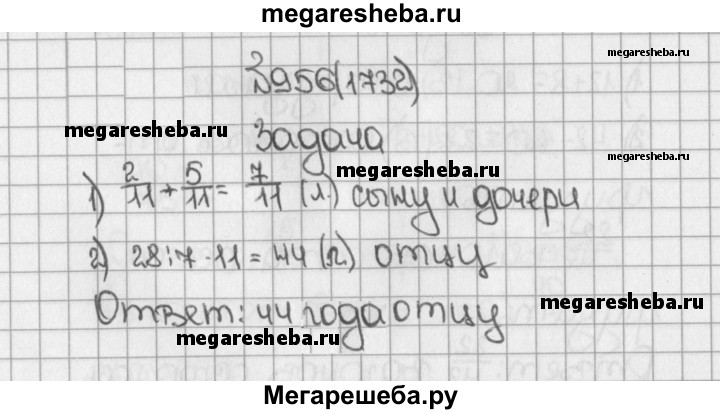 megaresheba.ru
№956(1732)
megaresheba.ru
megaresheba.ru
Задача
megaresheba.ru
1) 2/11 + 5/11 = 7/11 (л.) сыну и дочери
2) 28:7·11=44 (л.) отцу
Ответ: 44 года отцу
megaresheba.ru
Мегарешеба.ру